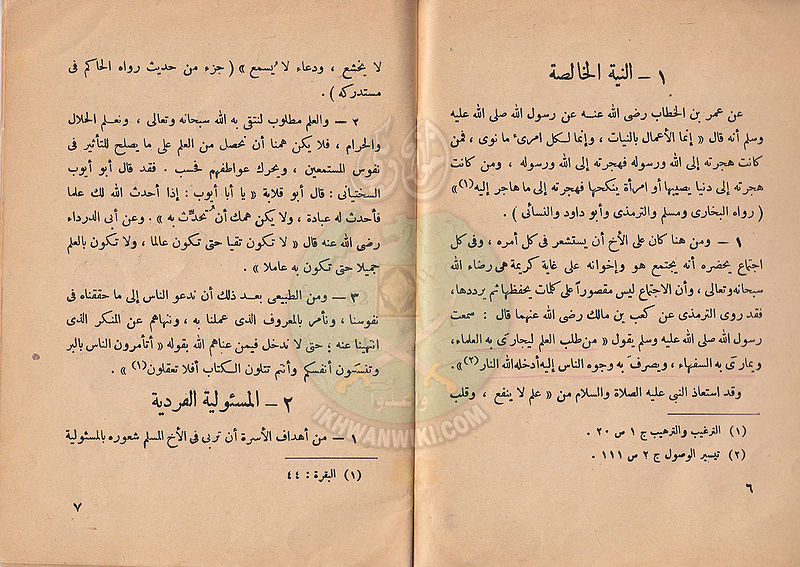 ١ – النية الخالصة
عن عمر بن الخطاب رضى الله عنه عن رسول الله صلى الله عليه
وسلم أنه قال « إنما الأعمال بالنيات ، وإنما لكل امرىء ما نوى ، فمن
كانت هجرته إلى الله ورسوله فهجرته إلى الله ورسوله ، ومن كانت
هجرته إلى دنيا يصيبها أو امرأة ينكحها فهجرته إلى ما هاجر إليه(١)»
( رواه البخارى ومسلم والترمذى وأبو داود والنسائى ) .
١ – ومن هنا كان على الأخ أن يستشعر فى كل أمره ، وفى كل
اجتماع يحضره أنه يجتمع هو وإخوانه على غاية كريمة هى رضاء الله
سبحانه وتعالى ، وأن الاجتماع ليس مقصوراً على كلمات يحفظها ثم يرددها،
فقد روى الترمذى عن كعب بن مالك رضى الله عنهما قال : سمعت
رسول الله صلى الله عليه وسلم يقول « من طلب العلم ليجارى به العلماء،
ويمارى به السفهاء ، ويصرف به وجوه الناس إليه أدخله الله النار(٢)» .
وقد استعاذ النبى عليه الصلاة والسلام من « علم لا ينفع ، وقلب
(١) الترغيب والترهيب ج ١ ص ٢٠ .
(٢) تيسير الوصول ج ٢ ص ١١١ .
٦
لا يخشع ، ودعاء لا يُسمع » ( جزء من حديث رواه الحاكم فى
مستدركه ) .
٢ – والعلم مطلوب لنتقى به الله سبحانه وتعالى ، ونعلم الحلال
والحرام ، فلا يكن همنا أن نحصل من العلم على ما يصلح للتأثير فى
نفوس المستمعين ، ويحرك عواطفهم فحسب . فقد قال أبو أيوب
السختيانى : قال أبو قلابة « يا أبا أيوب : إذا أحدث الله لك علما
فأحدث له عبادة ، ولا يكن همك أن تُحدِّث به » . وعن أبى الدرداء
رضى الله عنه قال « لا تكون تقيا حتى تكون عالما ، ولا تكون بالعلم
جميلا حتى تكون به عاملا » .
٣ – ومن الطبيعى بعد ذلك أن ندعو الناس إلى ما حققناه فى
نفوسنا ، ونأمر بالمعروف الذى عملنا به ، وننهاهم عن المنكر الذى
انتهينا عنه ؛ حتى لا ندخل فيمن عناهم الله بقوله « أتأمرون الناس بالبر
وتنسون أنفسكم وأنتم تتلون الكتاب أفلا تعقلون(١) » .
٢ – المسئولية الفردية
١ – من أهداف الأسرة أن تربى فى الأخ المسلم شعوره بالمسئولية
(١) البقرة : ٤٤
٧
وأعدوا
IKHWANWIKI.COM